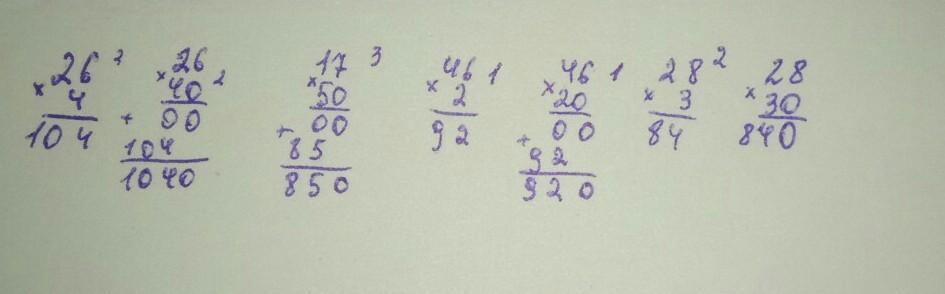 26 2
× 4
104
26
× 40 2
+ 00
104
1040
17 3
× 50
+ 00
85
850
46 1
× 2
92
46 1
× 20
+ 00
92
920
28 2
× 3
84
28
× 30
840